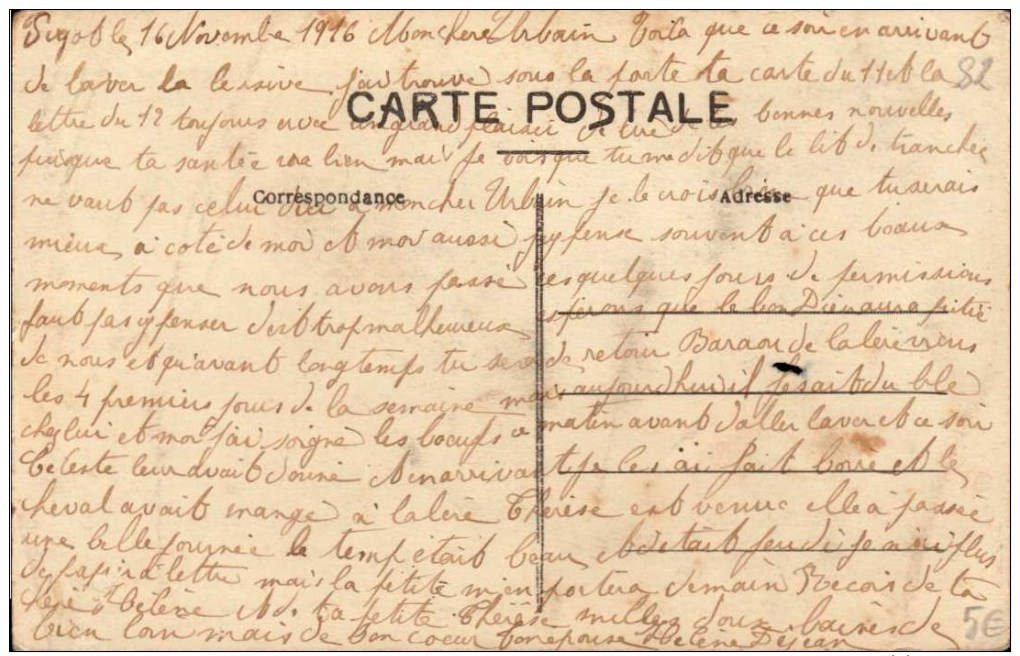 le 16 Novembre 1916 Mon chere Urbain Voila que ce soir en arrivant
de laver la lessive j'ai trouve sous la porte ta carte du 11 et la 82
lettre du 12 toujours avec un grand plaisir de lire de tes bonnes nouvelles
CARTE POSTALE
puisque ta santée va bien mais je vois que tu me dit que le lit de tranchée
ne vaut pas celui d'ici a mon cher Urbain je le crois bien que tu serais
Correspondance Adresse
mieux a coté de moi et moi aussi j'y pense souvent a ces beaux
moments que nous avons passé ces quelques jours de permissions
faut pas y penser doit trop malheureux esperons que le bon Dieu aura pitié
de nous et qu'avant longtemps tu sera de retour Baraou de viens
les 4 premiers jours de la semaine mais aujourdhui il fesait du blé
chez lui et moi j'ai soigné les boeufs ce matin avant d'aller laver et ce soir
Celeste leur avait donné et en arrivant je les ai fait boire et le
cheval avait mangé a Thérèse est venue elle a passée
une belle journée le temp etait beau et c'etait jeudi je n'ai plus
de papier a lettre mais la petite m'en portera demain Recois de ta
Hélène et de ta petite Thérèse mille doux baisers de
bien loin mais de bon coeur ton epouse Helene Dejean
5€